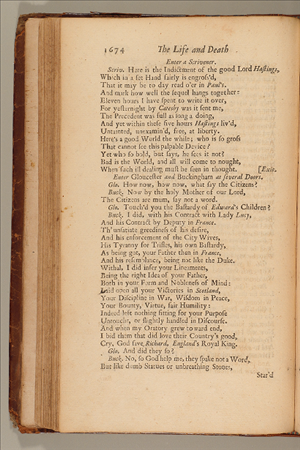 1674 The Life and Death
Enter a Scrivener.
Scriv. Here is the Indictment of the good Lord Hastings,
Which in a set Hand fairly is engross'd,
That it may be to day read o'er in Paul's.
And mark how well the sequel hangs together:
Eleven hours I have spent to write it over,
For yesternight by Catesby was it sent me,
The Precedent was full as long a doing,
And yet within these five hours Hastings liv'd,
Untainted, unexamin'd, free, at liberty.
Here's a good World the while; who is so gross
That cannot see this palpable Device?
Yet who so bold, but says, he sees it not?
Bad is the World, and all will come to nought,
When such ill dealing must be seen in thought. [Exit.
Enter Gloucester and Buckingham at several Doors.
Glo. How now, how now, what say the Citizens?
Buck. Now by the holy Mother of our Lord,
The Citizens are mum, say not a word.
Glo. Touch'd you the Bastardy of Edward's Children?
Buck. I did, with his Contract with Lady Lucy,
And his Contract by Deputy in France.
Th' unsatiate greediness of his desire,
And his enforcement of the City Wives,
His Tyranny for Trifles, his own Bastardy,
As being got, your Father then in France,
And his resemblance, being not like the Duke.
Withal, I did infer your Lineaments,
Being the right Idea of your Father,
Both in your Form and Nobleness of Mind:
Laid open all your Victories in Scotland,
Your Discipline in War, Wisdom in Peace,
Your Bounty, Virtue, fair Humility:
Indeed left nothing fitting for your Purpose
Untoucht, or slightly handled in Discourse.
And when my Oratory grew toward end,
I bid them that did love their Country's good,
Cry, God save Richard, England's Royal King.
Glo. And did they so?
Buck. No, so God help me, they spake not a Word,
But like dumb Statues or unbreathing Stones,
Star'd